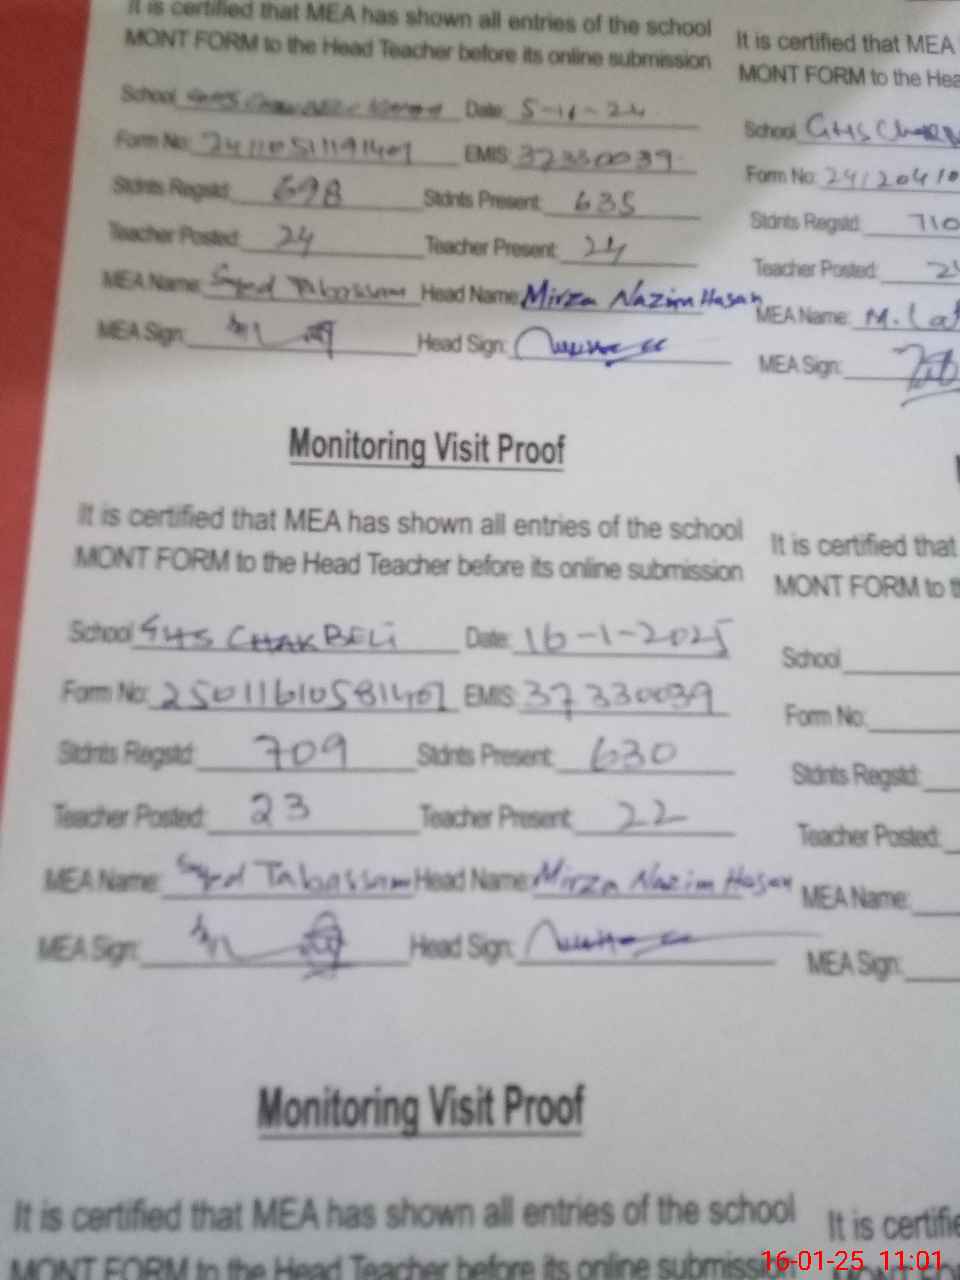 It is certified that MEA has shown all entries of the school
MONT FORM to the Head Teacher before its online submission
School Date: 5-11-24
Form No: 24110511191401 EMIS: 37330039
Stdnts Regstd: 698 Stdnts Present: 635
Teacher Posted: 24 Teacher Present: 24
MEA Name: Syed Tabassam Head Name: Mirza Nazim Hasan
MEA Sign: Head Sign:
It is certified that MEA
MONT FORM to the Hea
School GHS
Form No: 24120410
Stdnts Regstd: 710
Teacher Posted: 2
MEA Name: M.
MEA Sign:
Monitoring Visit Proof
It is certified that MEA has shown all entries of the school
MONT FORM to the Head Teacher before its online submission
School GHS CHAK BELi Date: 16-1-2025
Form No: 25011610581401 EMIS: 37330039
Stdnts Regstd: 709 Stdnts Present: 630
Teacher Posted: 23 Teacher Present: 22
MEA Name: Syed Tabassam Head Name: Mirza Nazim Hasan
MEA Sign: Head Sign:
It is certified that
MONT FORM to
School
Form No:
Stdnts Regstd:
Teacher Posted:
MEA Name:
MEA Sign:
Monitoring Visit Proof
It is certified that MEA has shown all entries of the school
MONT FORM to the Head Teacher before its online submission
It is certifie
16-01-25 11:01